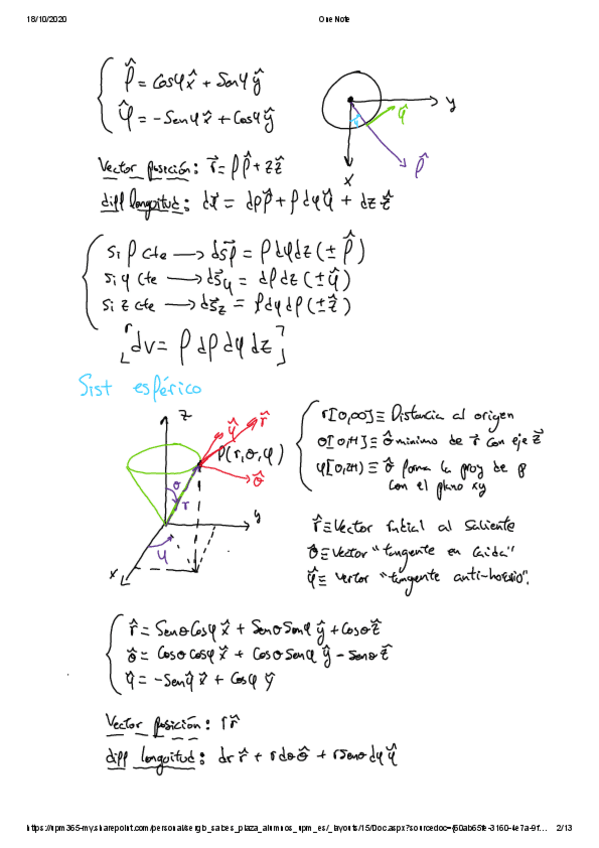 18/10/2020 OneNote
ρ̂ = Cosφ x̂ + Senφ ŷ
φ̂ = -Senφ x̂ + Cosφ ŷ
y
φ̂
ρ̂
x
Vector posición: r⃗ = ρρ̂ + zẑ
diff longitud: dr⃗ = dρρ̂ + ρdφφ̂ + dz ẑ
Si ρ cte → ds⃗ρ = ρdφdz (± ρ̂)
Si φ cte → ds⃗φ = dρdz (± φ̂)
Si z cte → ds⃗z = ρdφdρ (± ẑ)
[dv = ρ dρ dφ dz]
Sist esférico
z
φ̂
r̂
P(r,θ,φ)
θ̂
θ
r
y
φ
x
r[0,∞] ≡ Distancia al origen
θ[0,π] ≡ θ̂ mínimo de r⃗ con eje z⃗
φ[0,2π) ≡ θ̂ forma la proy de p
con el plano xy
r̂ ≡ Vector radial al saliente
θ̂ ≡ Vector "tangente en caída"
φ̂ ≡ Vector "tangente anti-horario".
r̂ = SenθCosφ x̂ + SenθSenφ ŷ + Cosθ ẑ
θ̂ = Cosθ cosφ x̂ + Cosθ Senφ ŷ - Senθ ẑ
φ̂ = -Senφ x̂ + Cosφ ŷ
Vector posición: r r̂
diff longuitud: dr r̂ + rdθ θ̂ + rSenθ dφ φ̂
https://upm365-my.sharepoint.com/personal/sergb_sabes_plaza_alumnos_upm_es/_layouts/15/Doc.aspx?sourcedoc={60ab65fe-3160-4e7a-9f... 2/13